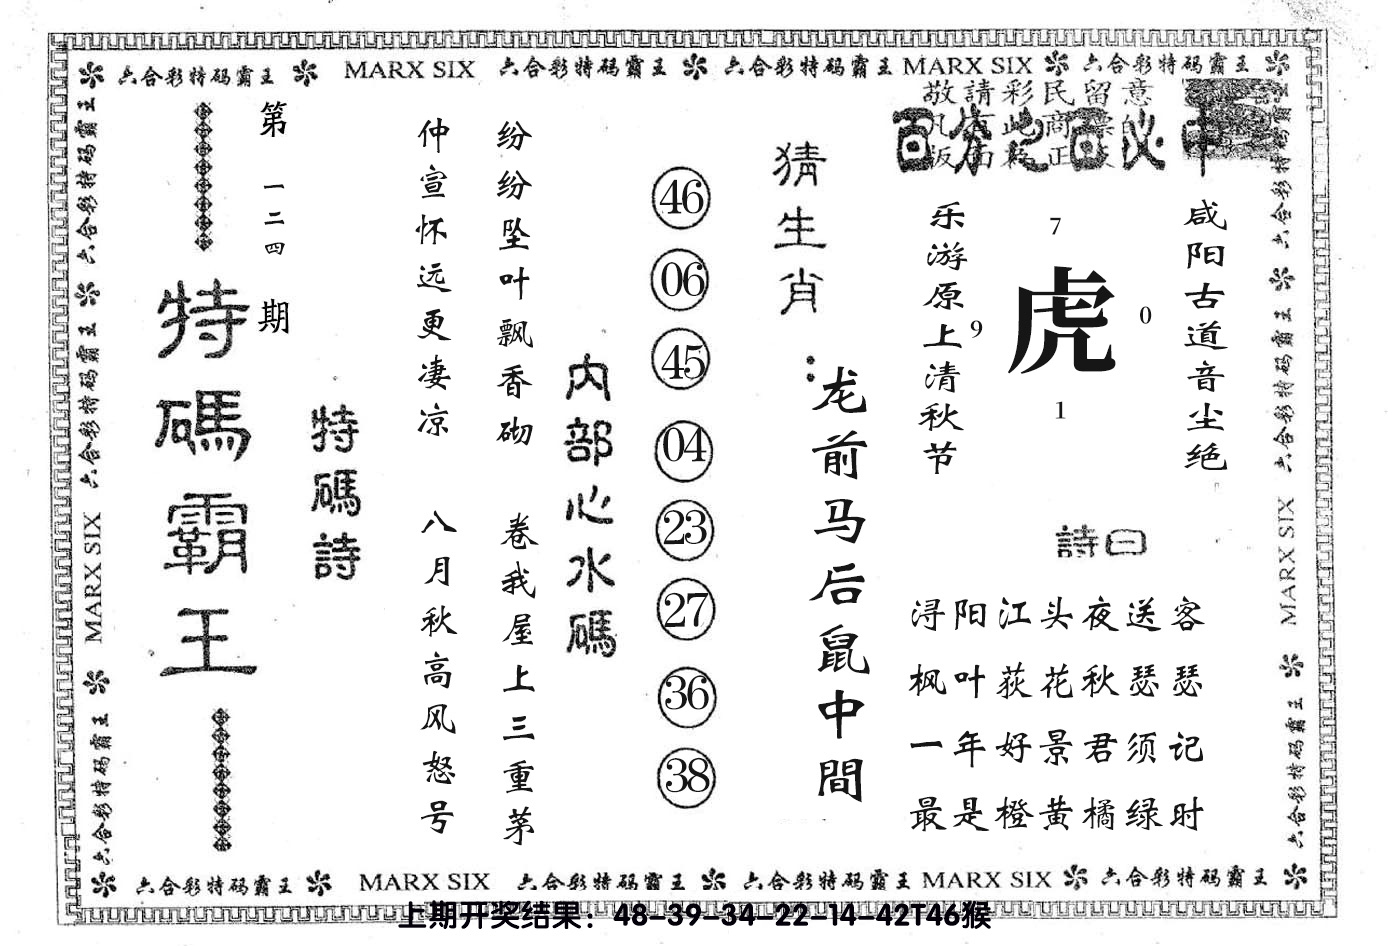 六合彩特码霸王 MARX SIX 六合彩特码霸王 六合彩特码霸王 MARX SIX 六合彩特码霸王
六合彩特码霸王 六合彩特码霸王 MARX SIX 六合彩特码霸王
第一二四期
特碼霸王
特碼詩
仲宣怀远更凄凉
纷纷坠叶飘香砌
八月秋高风怒号
卷我屋上三重茅
内部心水碼
46
06
45
04
23
27
36
38
猜生肖:
龙前马后鼠中間
敬請彩民留意
百分之百必中
乐游原上清秋节
7
9
虎
0
1
咸阳古道音尘绝
詩曰
浔阳江头夜送客
枫叶荻花秋瑟瑟
一年好景君须记
最是橙黄橘绿时
六合彩特码霸王 六合彩特码霸王 MARX SIX 六合彩特码霸王
六合彩特码霸王 MARX SIX 六合彩特码霸王 六合彩特码霸王 MARX SIX 六合彩特码霸王
上期开奖结果：48-39-34-22-14-42T46猴